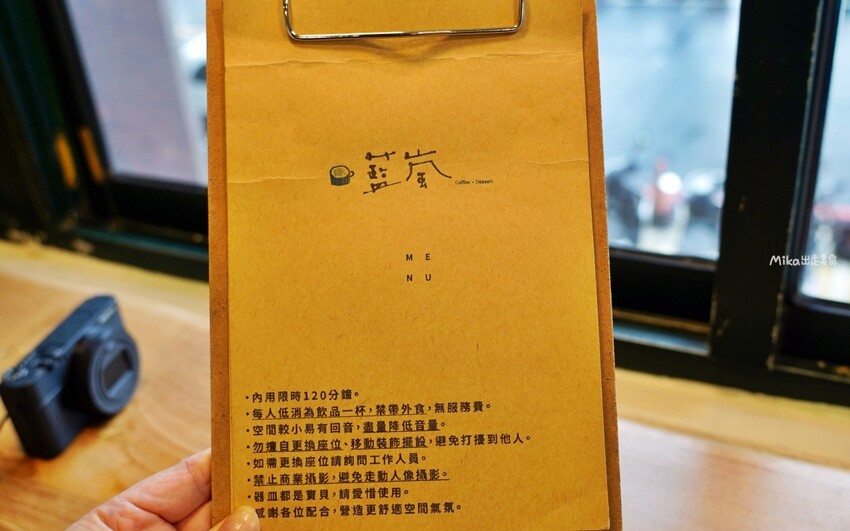 藍嵐
Coffee・Dessert
M E
N U
Mika出走美食
・內用限時120分鐘。
・每人低消為飲品一杯，禁帶外食，無服務費。
・空間較小易有回音，盡量降低音量。
・勿擅自更換座位、移動裝飾擺設，避免打擾到他人。
・如需更換座位請詢問工作人員。
・禁止商業攝影，避免走動人像攝影。
・器皿都是寶貝，請愛惜使用。
感謝各位配合，營造更舒適空間氣氛。